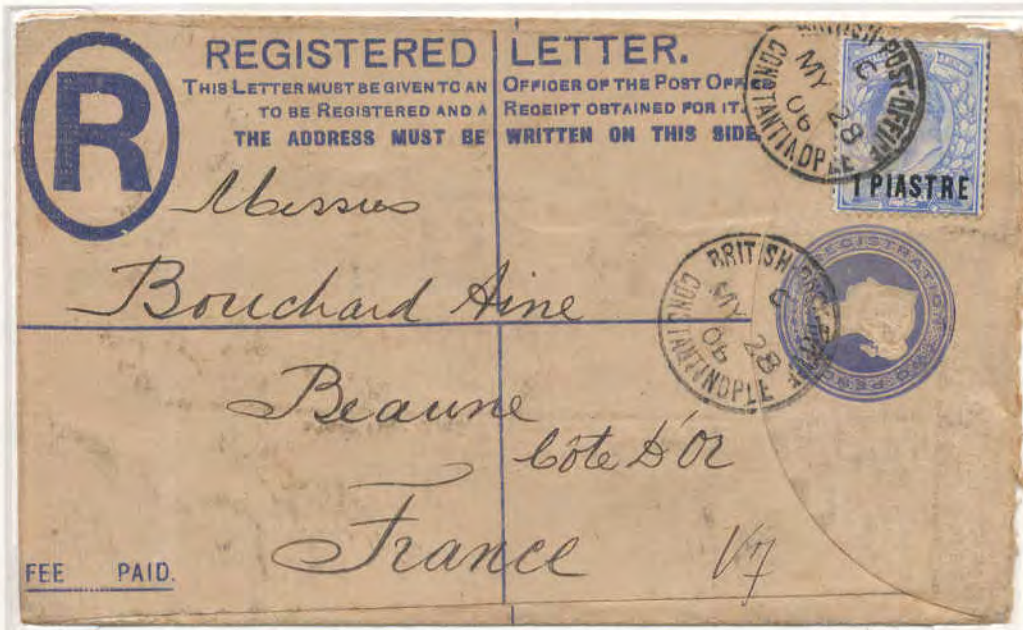 REGISTERED LETTER.
THIS LETTER MUST BE GIVEN TO AN OFFICER OF THE POST OFF
TO BE REGISTERED AND A RECEIPT OBTAINED FOR IT.
THE ADDRESS MUST BE WRITTEN ON THIS SIDE
R
BRITISH POST-OFFICE
CONSTANTINOPLE
C
MY 28
06
1 PIASTRE
Messrs
Bouchard Aine
BRITISH POST OFFICE
CONSTANTINOPLE
C
MY 28
06
REGISTRATION TWO PENCE
Beaune
Côte D'Or
France
FEE PAID.